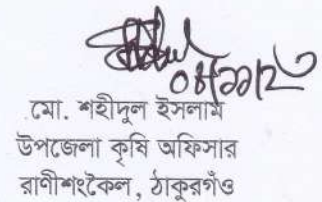 ০৪/১১/২৩
মো. শহীদুল ইসলাম
উপজেলা কৃষি অফিসার
রাণীশংকৈল, ঠাকুরগাঁও